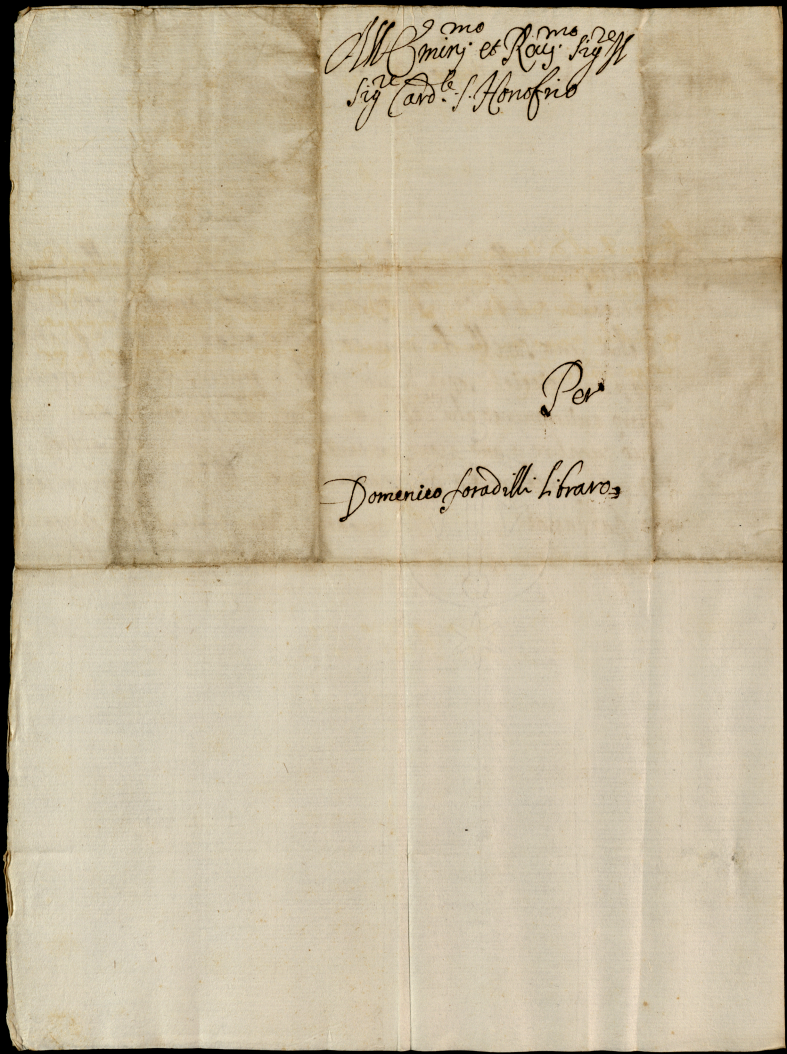 All Eminj.mo et Rauj.mo Sig.re Il
Sig.re Card.le S. Honofrio
Per
Domenico foradilli Libraro